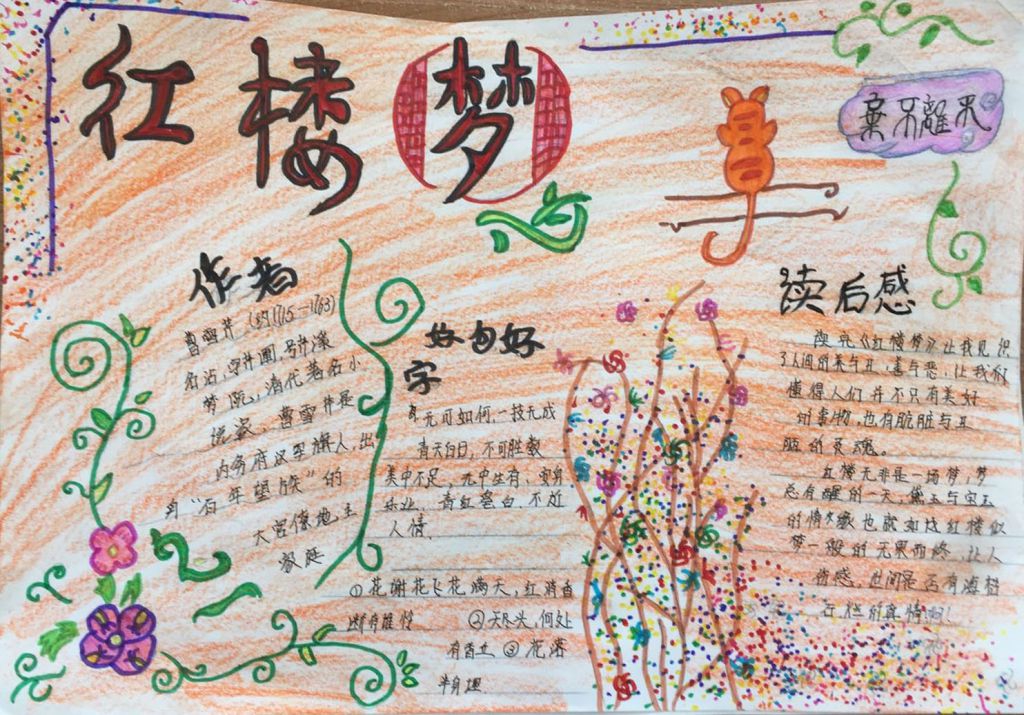 红楼梦
作者
曹雪芹 (约1715—1763)
名沾,字梦
清代著名小
曹雪芹是
内务府汉军旗人,出
“百年望族”的
大官僚地主
家庭
好句好
字
无可如何,一技无成
青天白日,不可胜数
美中不足,无中生有,安身
乐业,青红皂白,不近
人情,
①花谢花飞花满天,红消香
断有谁怜 ②天尽头,何处
有香丘 ③花落
读后感
读完《红楼梦》让我见识
了人间的美与丑,善与恶,让我们
懂得人们并不只有美好
的事物,也有肮脏与丑
的灵魂。
红楼无非是一场梦,梦
总有醒的一天,黛玉与宝玉
的情缘也就如这红楼似
梦一般的无果而终,让人
伤感,世间是否有